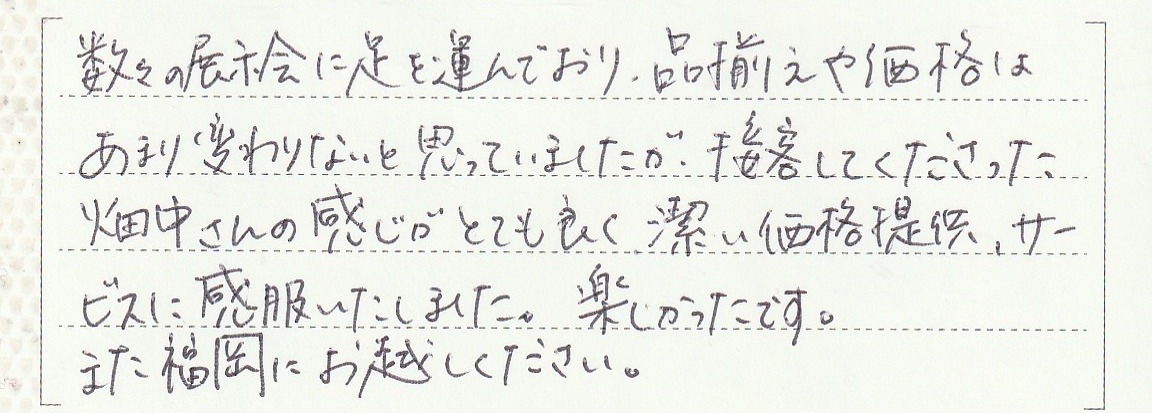 数々の展示会に足を運んでおり、品揃えや価格は
あまり変わりないと思っていましたが、接客してくださった
畑中さんの感じがとても良く潔い価格提供、サー
ビスに感服いたしました。楽しかったです。
また福岡にお越しください。